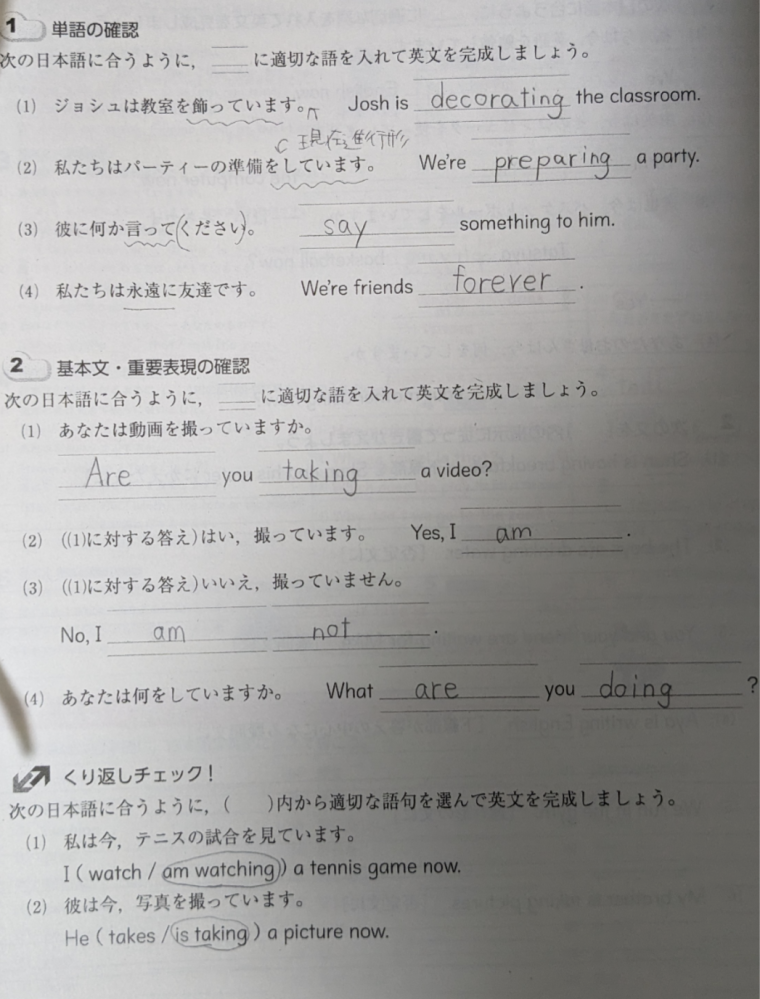 1 単語の確認
次の日本語に合うように，＿＿に適切な語を入れて英文を完成しましょう。
(1) ジョシュは教室を飾っています。 Josh is decorating the classroom.
現在進行形
(2) 私たちはパーティーの準備をしています。 We're preparing a party.
(3) 彼に何か言って(ください)。 say something to him.
(4) 私たちは永遠に友達です。 We're friends forever.
2 基本文・重要表現の確認
次の日本語に合うように，＿＿に適切な語を入れて英文を完成しましょう。
(1) あなたは動画を撮っていますか。
Are you taking a video?
(2) ((1)に対する答え)はい，撮っています。 Yes, I am.
(3) ((1)に対する答え)いいえ，撮っていません。
No, I am not.
(4) あなたは何をしていますか。 What are you doing?
くり返しチェック！
次の日本語に合うように，(　　)内から適切な語句を選んで英文を完成しましょう。
(1) 私は今，テニスの試合を見ています。
I ( watch / am watching ) a tennis game now.
(2) 彼は今，写真を撮っています。
He ( takes / is taking ) a picture now.